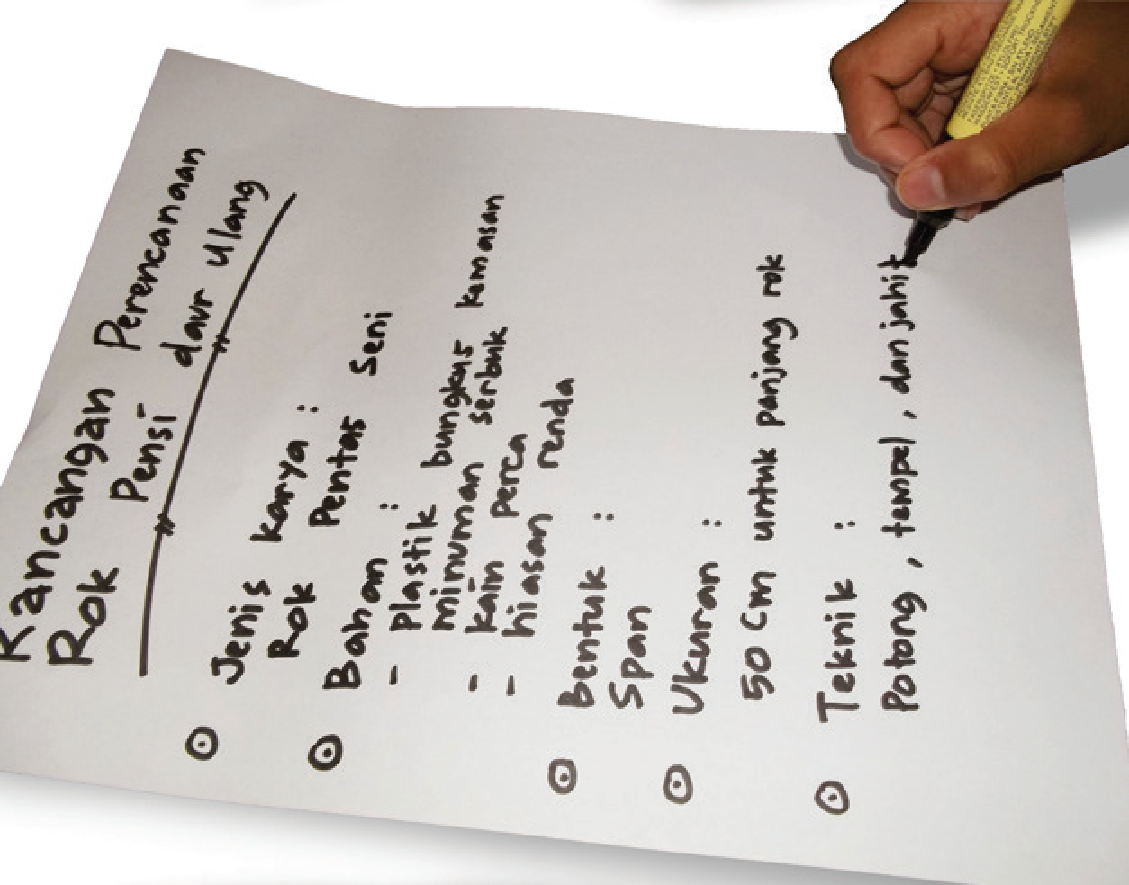 Rancangan Perencanaan
Rok Pensi daur ulang
Jenis karya :
Rok Pentas Seni
Bahan :
- plastik bungkus kemasan
minuman serbuk
- kain perca
- hiasan renda
Bentuk :
Span
Ukuran :
50 cm untuk panjang rok
Teknik :
Potong, tempel, dan jahit